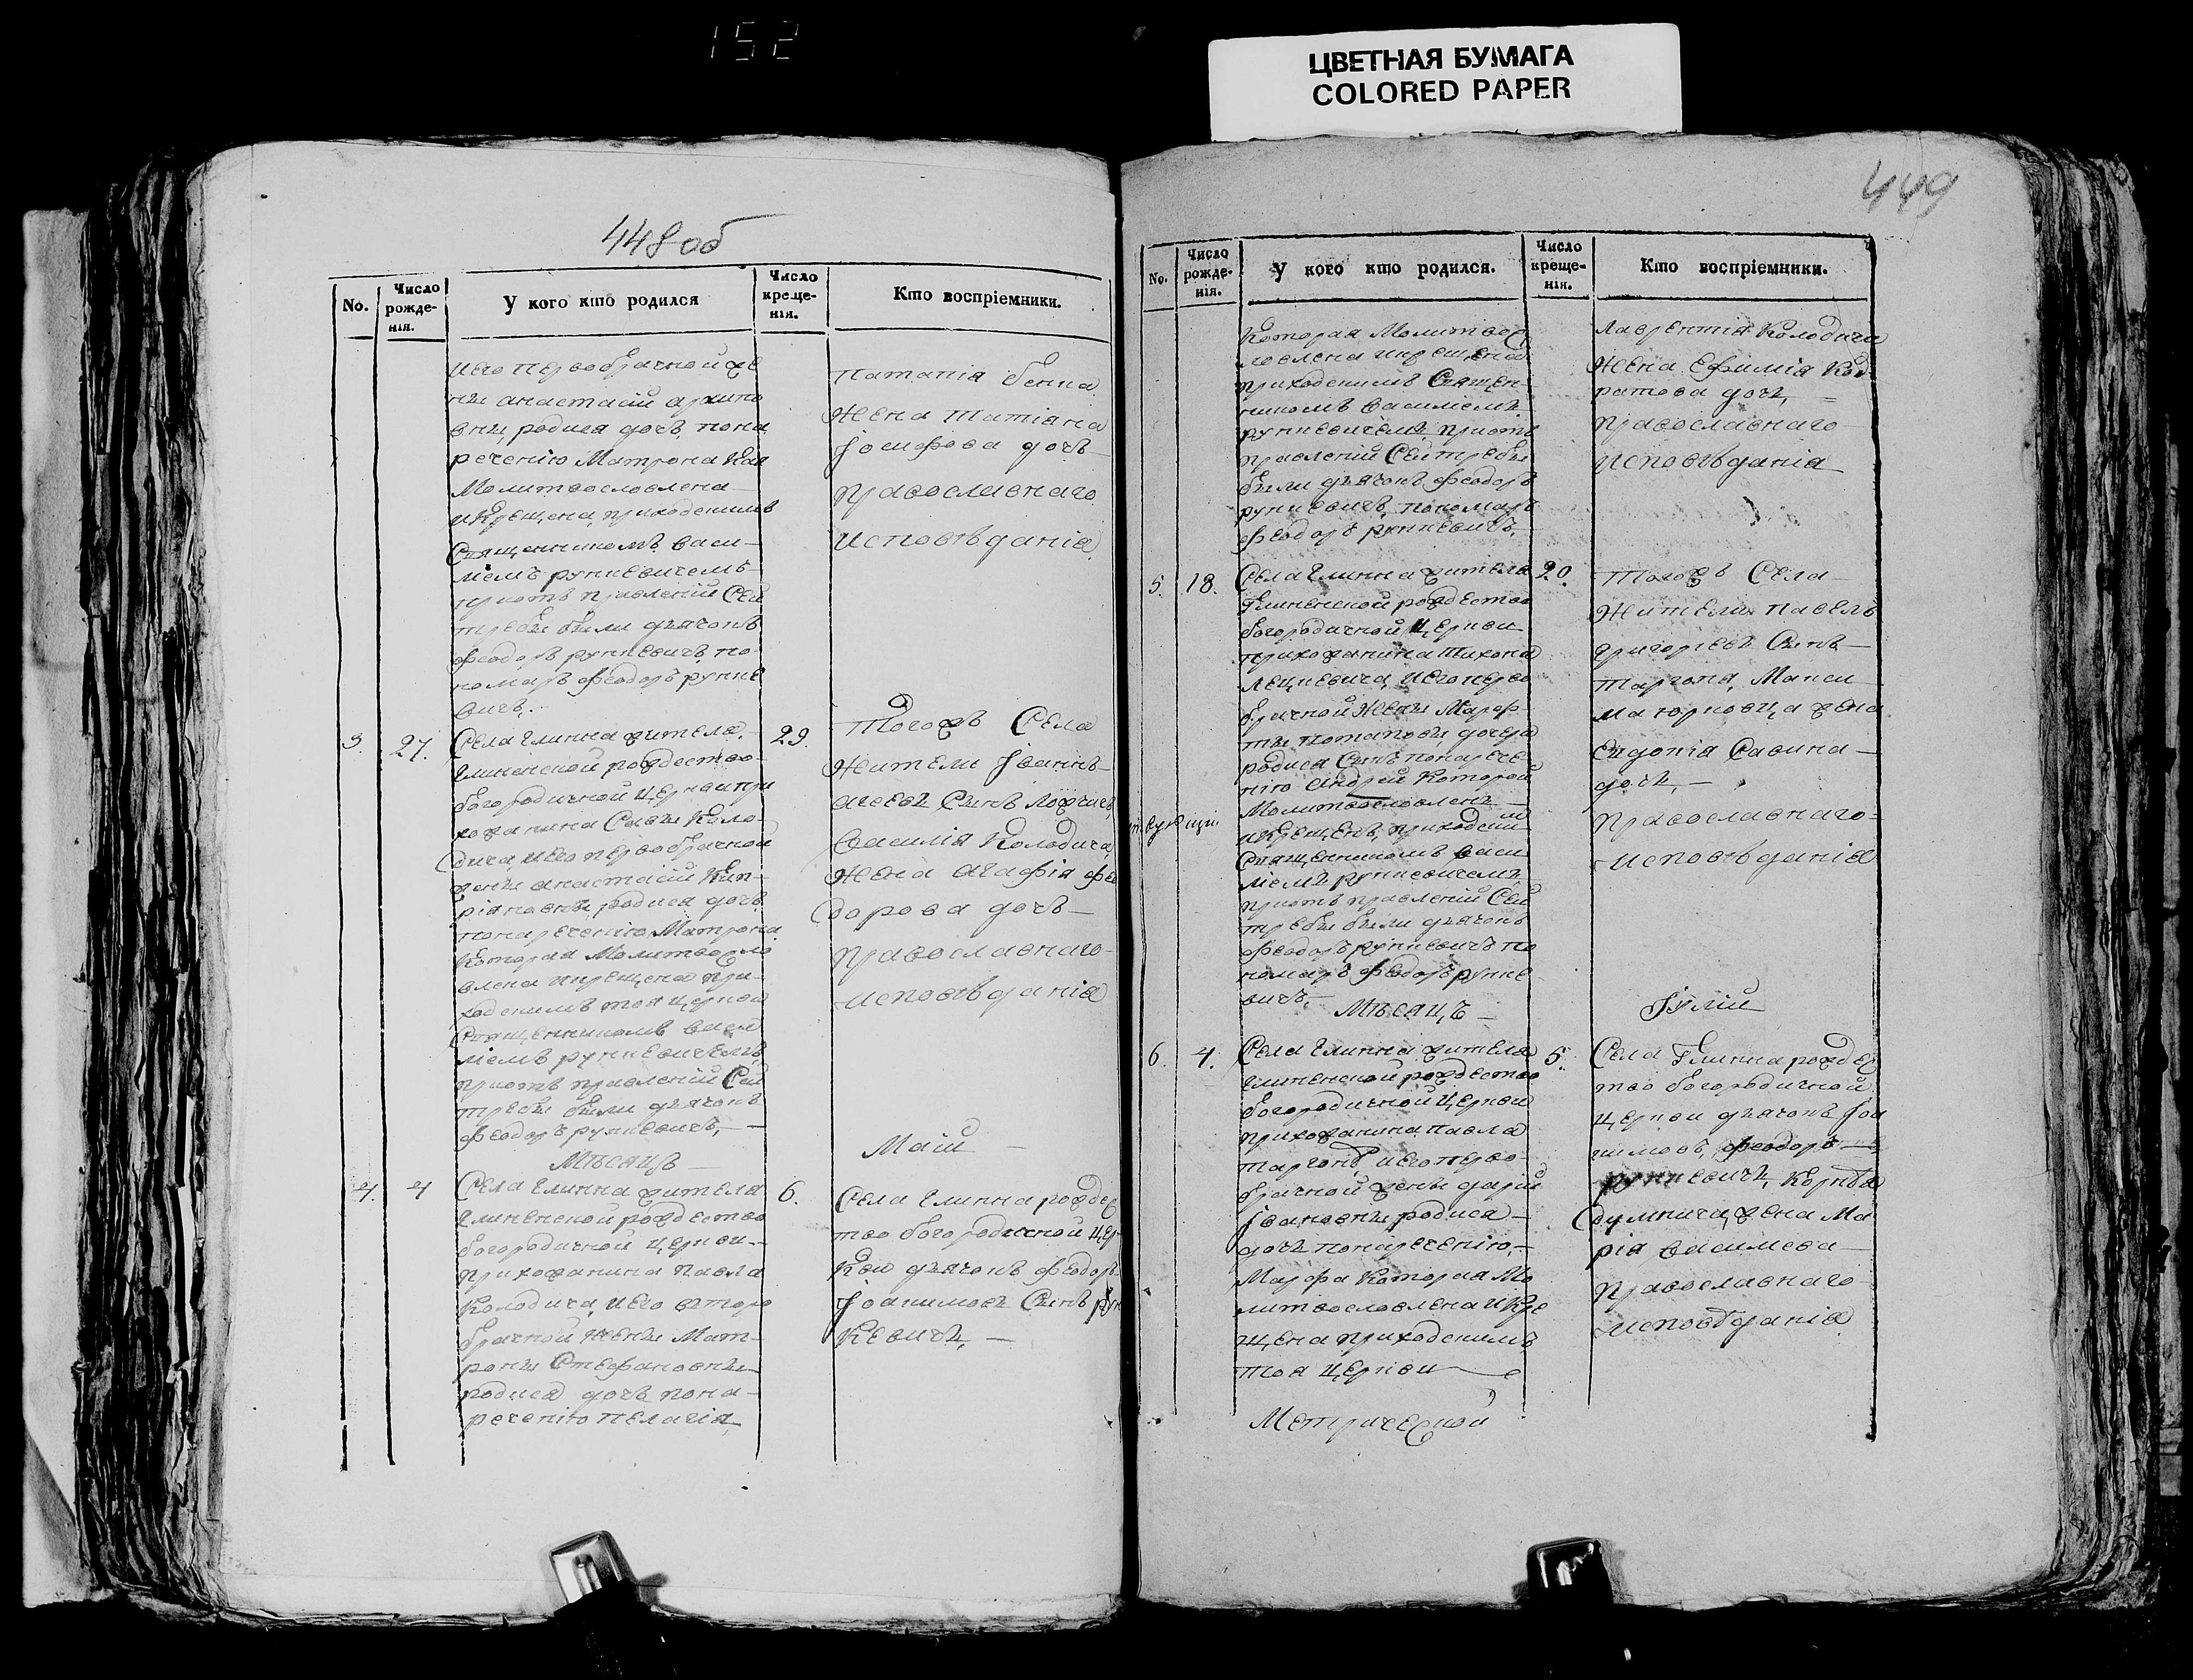 152
ЦВЕТНАЯ БУМАГА
COLORED PAPER
448 об
No.
Число рожде-нія.
У кого кто родился
Число креще-нія.
Кто воспріемники.
иего первобрачной же
ны анастасіи архипо
вны, родися дочь, пона
речению Матрона Коя
Молитвословлена
икрещена, приходскимъ
Священникомъ васи-
ліемъ рункевичемъ
приотъ правленіи Сей
требы были дьячокъ
феодоръ рункевичъ, по-
номаръ феодоръ рунке
вичъ,
Потапія
Жена татіяна
Іосифова дочь
православнаго
исповѣданія
3.
27.
Села глинна жителя,
глиненской рождество
богородичной церкви при
хожанина Савы Коло-
дича, иего первобрачной
жены анастасіи Кип-
ріяновны, родися дочь
понаречению Матрона
Которая Молитвосло
влена икрещена при-
ходскимъ тоя церкви
Священникомъ васи
ліемъ рункевичемъ,
приотъ правленіи Сей
требы были дьячокъ
феодоръ рункевичъ,
29.
Тогожъ Села
Жители Іоаннъ
Сынъ
василія Колодича,
Жена агафія фео
дорова дочь
православнаго
исповѣданія
Мѣсяцъ
Маій
4.
4
Села глинна жителя
глиненской рождество
богородичной церкви
прихожанина павла
Колодича, иего второ
брачной жены Мат-
роны Стефановны
родися дочь пона-
речению пелагія,
6.
Села глинна рождес
тво богородичной цер
Кви дьячокъ феодоръ
Іоакимовъ Сынъ рун
Кевичъ,
449
No.
Число рожде-нія.
У кого кто родился.
Число креще-нія.
Кто воспріемники.
Которая Молитвос
ловлена икрещена
приходскимъ Священ-
никомъ василіемъ
рункевичемъ, приотъ
правленіи Сей требы
были дьячокъ феодоръ
рункевичъ, пономаръ
феодоръ рункевичъ,
Лаврентія Колодича
Жена Ефимія Код
ратова дочь,
православнаго
исповѣданія
5.
18.
Села глинна жителя
глиненской рождество
богородичной церкви
прихожанина тихона
иего перво
брачной Жены Марф-
ты потаповы дочери
родися Сынъ понарече-
нію андрей Которой
Молитвословленъ
икрещенъ, приходским
Священникомъ васи
ліемъ рункевичемъ
приотъ правленіи Сей
требы были дьячокъ
феодоръ рункевичъ по
номаръ феодоръ рунке
вичъ,
20.
тогожъ Села
Жители павелъ
григоріевъ Сынъ
таргоня,
жена
Евдокія Савина
дочь,
православнаго
исповѣданія
Мѣсяцъ
Іулій
6.
4.
Села глинна жителя
глиненской рождество
богородичной церкви
прихожанина павла
иего перво-
брачной жены даріи
Івановны родися
дочь понаречению,
Марфа Которая Мо
литвословлена икре
щена приходскимъ
тоя церкви
5.
Села глинна рождес
тво богородичной
церкви дьячокъ Іоа
кимовъ, феодоръ
рункевичъ,
жена Ма
рія василева
православнаго
исповѣданія
Метрической